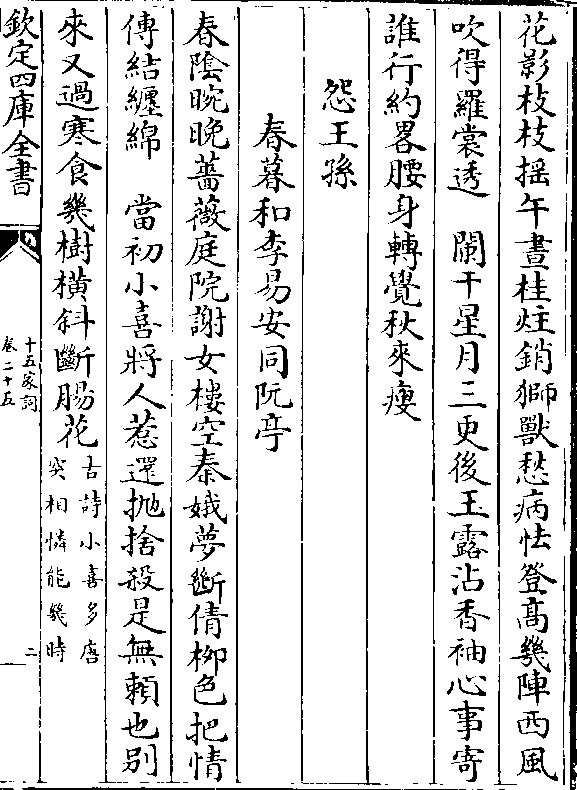 花影枝枝揺午晝桂炷銷獅獸愁病怯登高幾陣西風
吹得羅裳透　闌干星月三更後王露沾香袖心事寄
誰行約畧腰身轉覺秋來瘦
怨王孫
春暮和李易安同阮亭
春陰晼晚薔薇庭院謝女樓空秦娥夢斷倩栁色把情
傳結纏綿　當初小喜將人惹還抛捨殺是無賴也别
來又過寒食幾樹橫斜斷腸花
古詩小喜多唐
突相憐能幾時
欽定四庫全書
十五家詞
卷二十五
二